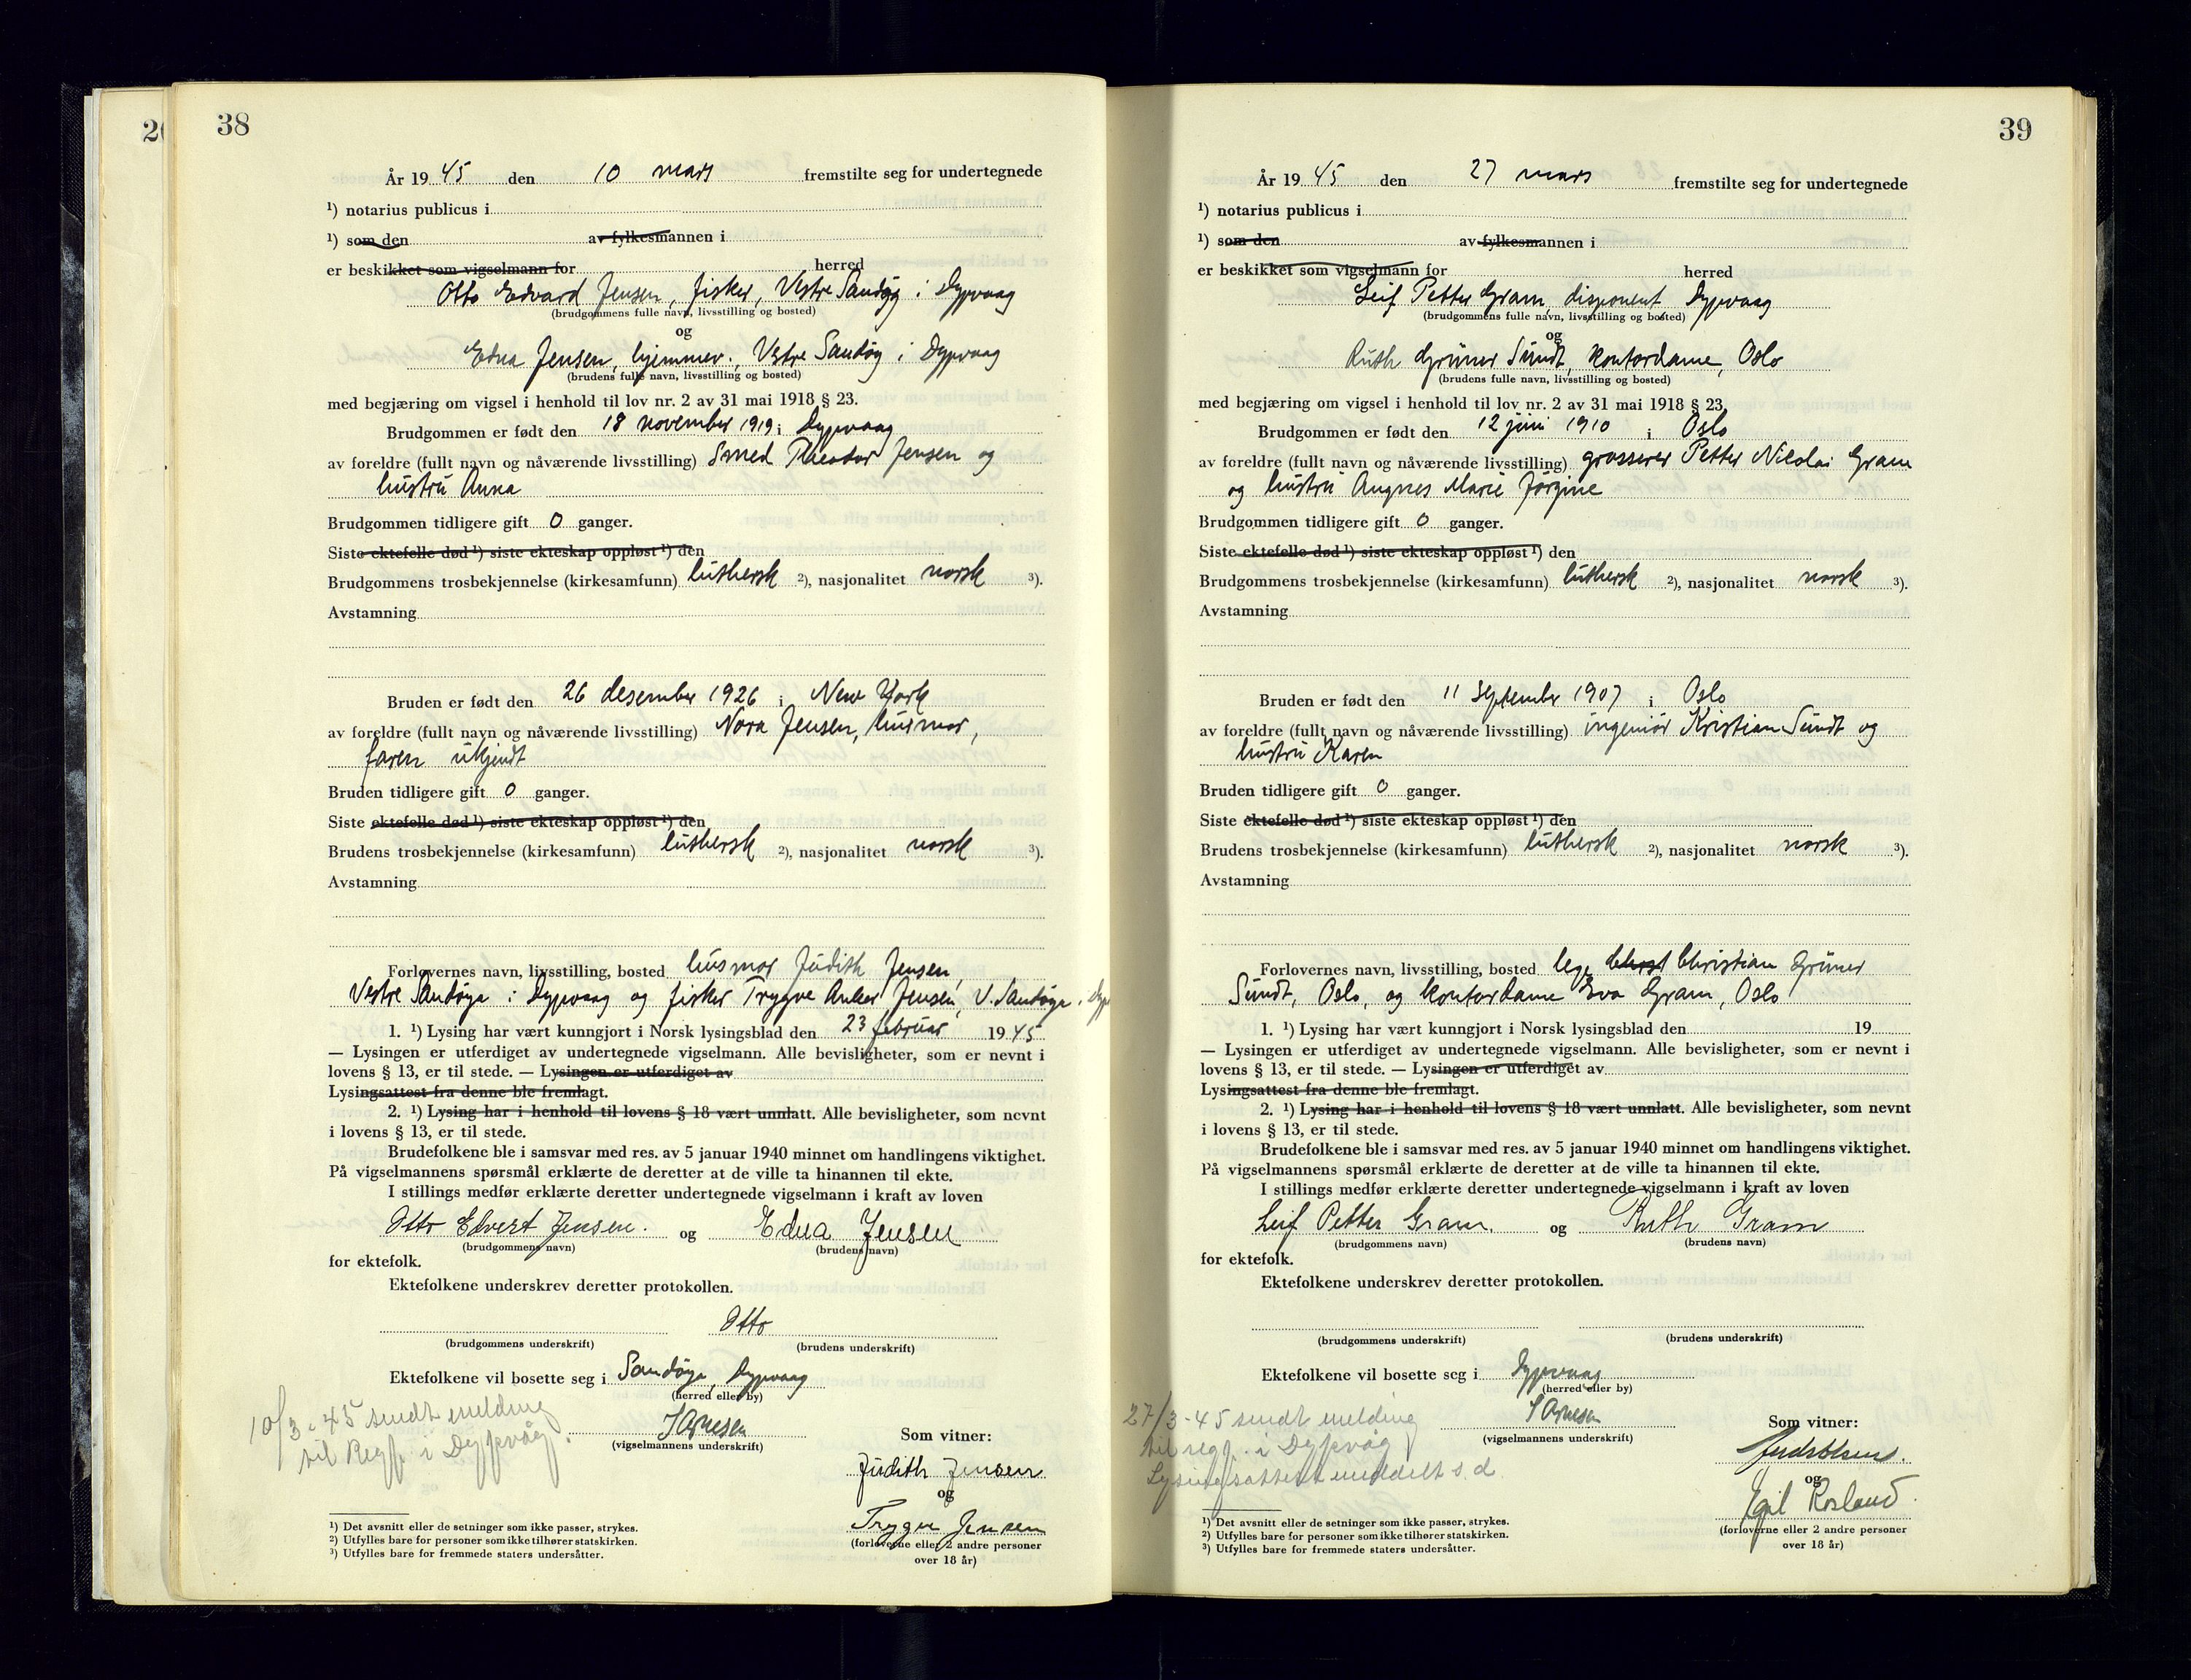 20
38
År 19 45 den 10 mars fremstilte seg for undertegnede
¹) notarius publicus i
¹) som den av fylkesmannen i
er beskikket som vigselmann for herred
Otto Edvard Jensen, fisker, Vestre Sandøy i Dypvaag
(brudgommens fulle navn, livsstilling og bosted)
og
Edna Jensen, hjemmev. Vestre Sandøy i Dypvaag
(brudens fulle navn, livsstilling og bosted)
med begjæring om vigsel i henhold til lov nr. 2 av 31 mai 1918 § 23.
Brudgommen er født den 18 november 1919 i Dypvaag
av foreldre (fullt navn og nåværende livsstilling) Smed Theodor Jensen og
hustru Anna
Brudgommen tidligere gift 0 ganger.
Siste ektefelle død ¹) siste ekteskap oppløst ¹) den
Brudgommens trosbekjennelse (kirkesamfunn) luthersk ²), nasjonalitet norsk ³).
Avstamning
Bruden er født den 26 desember 1926 i New York
av foreldre (fullt navn og nåværende livsstilling) Nora Jensen, husmor,
faren ukjendt
Bruden tidligere gift 0 ganger.
Siste ektefelle død ¹) siste ekteskap oppløst ¹) den
Brudens trosbekjennelse (kirkesamfunn) luthersk ²), nasjonalitet norsk ³).
Avstamning
Forlovernes navn, livsstilling, bosted husmor Judith Jensen,
Vestre Sandøya i Dypvaag og fisker Trygve Anker Jensen, V. Sandøya i Dyp
1. ¹) Lysing har vært kunngjort i Norsk lysingsblad den 23 februar 19 45
— Lysingen er utferdiget av undertegnede vigselmann. Alle bevisligheter, som er nevnt i
lovens § 13, er til stede. — Lysingen er utferdiget av
Lysingsattest fra denne ble fremlagt.
2. ¹) Lysing har i henhold til lovens § 18 vært unnlatt. Alle bevisligheter, som nevnt
i lovens § 13, er til stede.
Brudefolkene ble i samsvar med res. av 5 januar 1940 minnet om handlingens viktighet.
På vigselmannens spørsmål erklærte de deretter at de ville ta hinannen til ekte.
I stillings medfør erklærte deretter undertegnede vigselmann i kraft av loven
Otto Edvert Jensen. og Edna Jensen
(brudgommens navn) (brudens navn)
for ektefolk.
Ektefolkene underskrev deretter protokollen.
Otto
(brudgommens underskrift) (brudens underskrift)
Ektefolkene vil bosette seg i Sandøya, Dypvaag
(herred eller by)
10/3-45 sendt melding
til Regf. i Dypvåg.
(vigselmannens underskrift)
Som vitner:
Judith Jensen
og
Trygve Jensen
(forloverne eller 2 andre personer
over 18 år)
¹) Det avsnitt eller de setninger som ikke passer, strykes.
²) Utfylles bare for personer som ikke tilhører statskirken.
³) Utfylles bare for fremmede staters undersåtter.
39
År 19 45 den 27 mars fremstilte seg for undertegnede
¹) notarius publicus i
¹) som den av fylkesmannen i
er beskikket som vigselmann for herred
Leif Petter Gram, disponent Dypvaag
(brudgommens fulle navn, livsstilling og bosted)
og
Ruth Grüner Sundt, kontordame, Oslo
(brudens fulle navn, livsstilling og bosted)
med begjæring om vigsel i henhold til lov nr. 2 av 31 mai 1918 § 23.
Brudgommen er født den 12 juni 1910 i Oslo
av foreldre (fullt navn og nåværende livsstilling) grosserer Petter Nikolai Gram
og hustru Augnes Marie Jørgine
Brudgommen tidligere gift 0 ganger.
Siste ektefelle død ¹) siste ekteskap oppløst ¹) den
Brudgommens trosbekjennelse (kirkesamfunn) luthersk ²), nasjonalitet norsk ³).
Avstamning
Bruden er født den 11 september 1907 i Oslo
av foreldre (fullt navn og nåværende livsstilling) ingeniør Kristian Sundt og
hustru Karen
Bruden tidligere gift 0 ganger.
Siste ektefelle død ¹) siste ekteskap oppløst ¹) den
Brudens trosbekjennelse (kirkesamfunn) luthersk ²), nasjonalitet norsk ³).
Avstamning
Forlovernes navn, livsstilling, bosted lege Christian Grüner
Sundt, Oslo, og kontordame Eva Gram, Oslo
1. ¹) Lysing har vært kunngjort i Norsk lysingsblad den 19
— Lysingen er utferdiget av undertegnede vigselmann. Alle bevisligheter, som er nevnt i
lovens § 13, er til stede. — Lysingen er utferdiget av
Lysingsattest fra denne ble fremlagt.
2. ¹) Lysing har i henhold til lovens § 18 vært unnlatt. Alle bevisligheter, som nevnt
i lovens § 13, er til stede.
Brudefolkene ble i samsvar med res. av 5 januar 1940 minnet om handlingens viktighet.
På vigselmannens spørsmål erklærte de deretter at de ville ta hinannen til ekte.
I stillings medfør erklærte deretter undertegnede vigselmann i kraft av loven
Leif Petter Gram. og Ruth Gram
(brudgommens navn) (brudens navn)
for ektefolk.
Ektefolkene underskrev deretter protokollen.
(brudgommens underskrift) (brudens underskrift)
Ektefolkene vil bosette seg i Dypvaag
(herred eller by)
27/3-45 sendt melding
til regf. i Dypvåg
Lysingsattest meddelt s.d.
(vigselmannens underskrift)
Som vitner:
og
Egil Rosland
(forloverne eller 2 andre personer
over 18 år)
¹) Det avsnitt eller de setninger som ikke passer, strykes.
²) Utfylles bare for personer som ikke tilhører statskirken.
³) Utfylles bare for fremmede staters undersåtter.